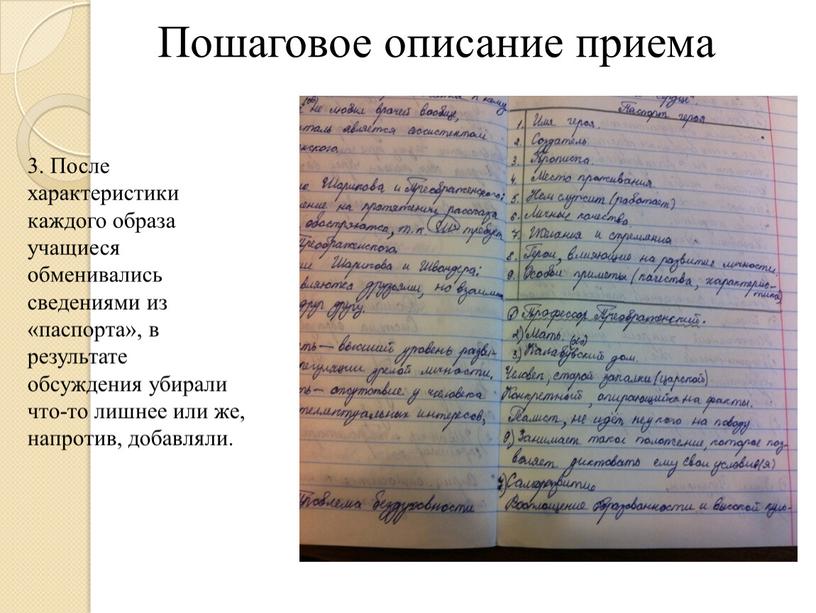 Пошаговое описание приема
3. После
характеристики
каждого образа
учащиеся
обменивались
сведениями из
«паспорта», в
результате
обсуждения убирали
что-то лишнее или же,
напротив, добавляли.
не любил врачей вообще,
является ассистентом
Шарикова и Преображенского:
на протяжении рассказа
Преображенского
Шарикова и Швондера:
друзьями, но
друг другу.
высший уровень
личности.
отсутствие у человека
интересов,
Проблема бездуховности
Паспорт героя
1. Имя героя.
2. Создатель.
3. Прописка.
4. Место проживания
5. Кем служит (работает)
6. Личные качества.
7. Желания и стремления
8. Герои, влияющие на развитие личности.
9. Особые приметы (качества, характерис-
тика)
1) Профессор Преображенский.
2) Мать.
3) Калабуховский дом.
Человек, старой закалки (царской)
Конкретный, опирающийся на факты.
не идёт на поводу
9) Занимает такое положение, которое поз-
воляет диктовать ему свои условия(я)
7) Саморазвитие
Воплощение образованности и высокой куль-